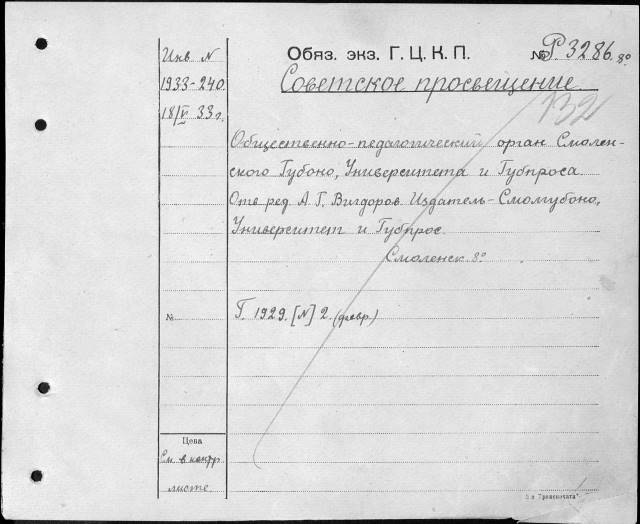 Инв N
1933-240.
18/V 33 г.
Обяз. экз. Г. Ц. К. П.
№ Р. 3286. 8°
Советское просвещение.
132
Общественно-педагогический орган Смолен-
ского Губоно, Университета и Губпроса.
Отв ред. А. Г. Вигдоров. Издатель - Смолгубоно,
Университет и Губпрос.
Смоленск. 8°
№
Г. 1929. [N] 2. (февр.)
Цена
См. в контр
листе.